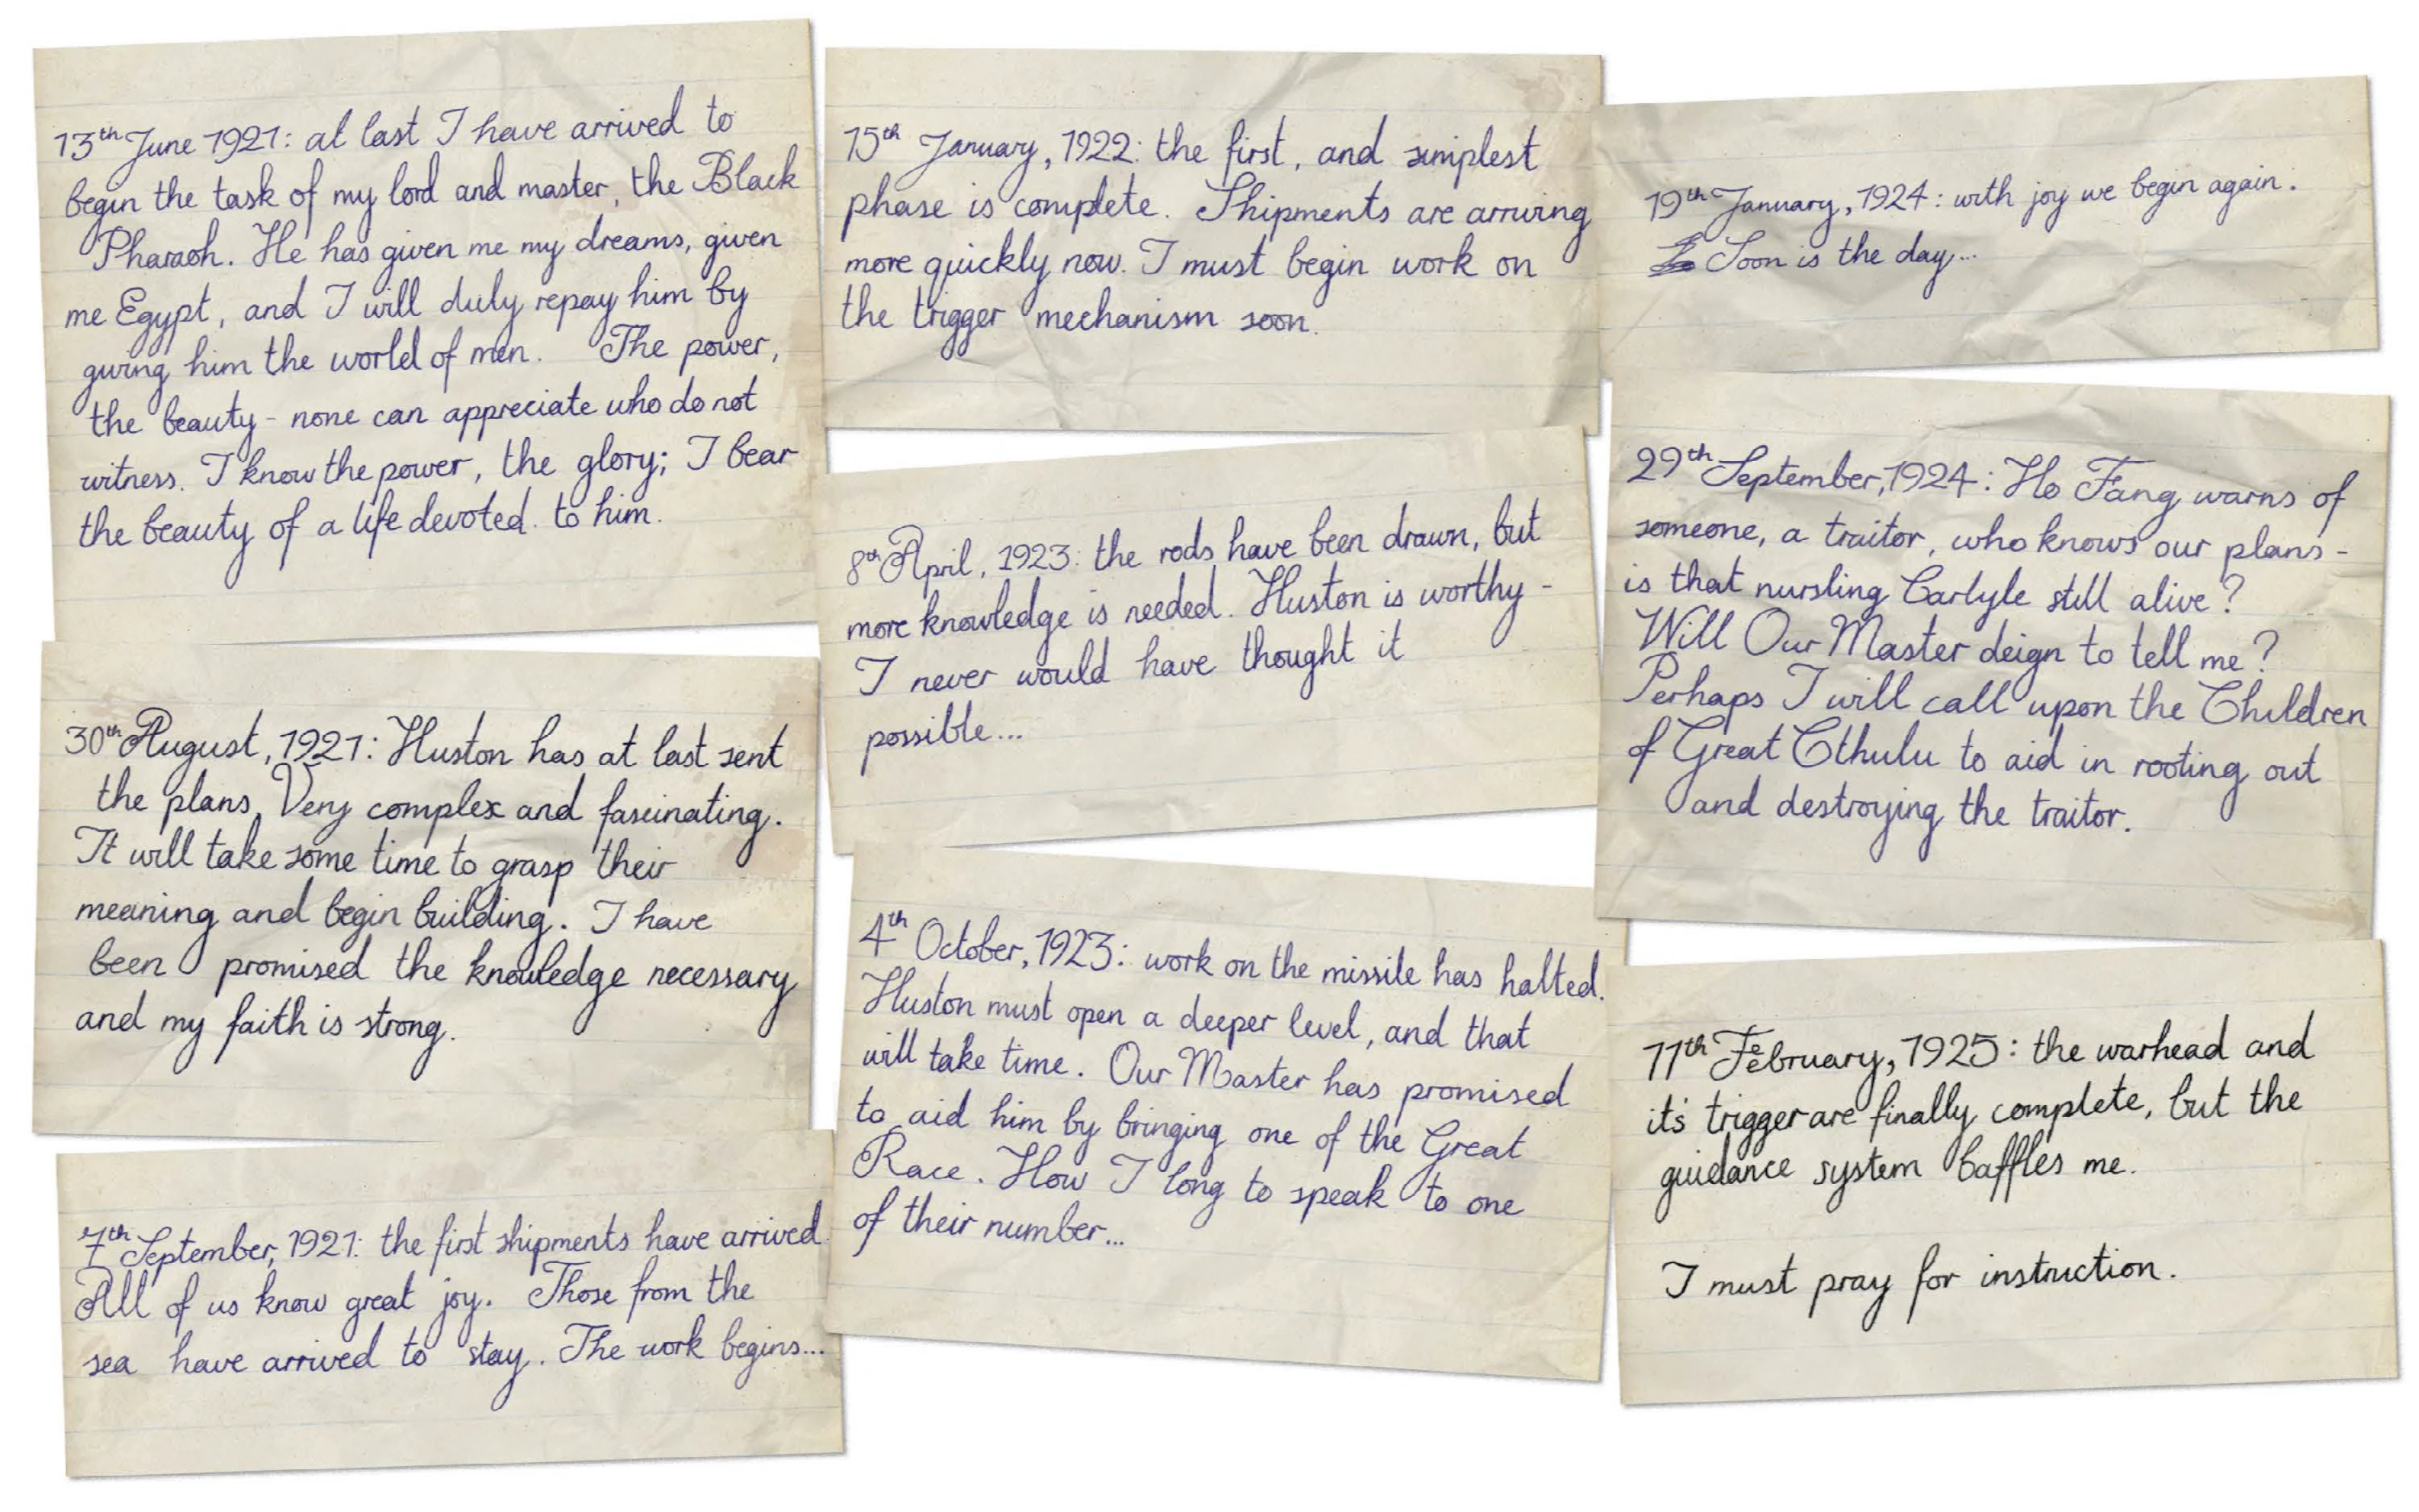 13th June 1921: at last I have arrived to
begin the task of my lord and master, the Black
Pharaoh. He has given me my dreams, given
me Egypt, and I will duly repay him by
giving him the world of men. The power,
the beauty - none can appreciate who do not
witness. I know the power, the glory; I bear
the beauty of a life devoted. to him.
30th August, 1921: Huston has at last sent
the plans. Very complex and fascinating.
It will take some time to grasp their
meaning and begin building. I have
been promised the knowledge necessary
and my faith is strong.
7th September, 1921: the first shipments have arrived.
All of us know great joy. Those from the
sea have arrived to stay. The work begins...
15th January, 1922: the first, and simplest
phase is complete. Shipments are arriving
more quickly now. I must begin work on
the trigger mechanism soon.
8th April, 1923: the rods have been drawn, but
more knowledge is needed. Huston is worthy -
I never would have thought it
possible...
4th October, 1923: work on the missile has halted.
Huston must open a deeper level, and that
will take time. Our Master has promised
to aid him by bringing one of the Great
Race. How I long to speak to one
of their number...
19th January, 1924: with joy we begin again.
Soon is the day...
29th September, 1924: Ho Fang warns of
someone, a traitor, who knows our plans -
is that nursling Carlyle still alive?
Will Our Master deign to tell me?
Perhaps I will call upon the Children
of Great Cthulu to aid in rooting out
and destroying the traitor.
11th February, 1925: the warhead and
it's trigger are finally complete, but the
guidance system baffles me.
I must pray for instruction.